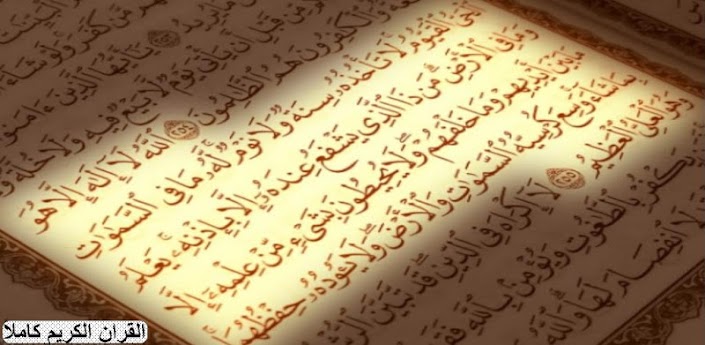 كَفَرَ وَلَوْ شَآءَ
يَٰٓأَيُّهَا ٱلَّذِينَ ءَامَنُوٓا۟
مِّن قَبْلِ أَن يَأْتِىَ يَوْمٌ لَّا بَيْعٌ فِيهِ وَلَا خُلَّةٌ
وَٱلْكَٰفِرُونَ هُمُ ٱلظَّٰلِمُونَ ٢٥٤ ٱللَّهُ لَآ إِلَٰهَ إِلَّا هُوَ
ٱلْحَىُّ ٱلْقَيُّومُ لَا تَأْخُذُهُۥ سِنَةٌ وَلَا نَوْمٌ لَّهُۥ مَا فِى ٱلسَّمَٰوَٰتِ
وَمَا فِى ٱلْأَرْضِ مَن ذَا ٱلَّذِى يَشْفَعُ عِندَهُۥٓ إِلَّا بِإِذْنِهِۦ يَعْلَمُ
مَا بَيْنَ أَيْدِيهِمْ وَمَا خَلْفَهُمْ وَلَا يُحِيطُونَ بِشَىْءٍ مِّنْ عِلْمِهِۦٓ إِلَّا
بِمَا شَآءَ وَسِعَ كُرْسِيُّهُ ٱلسَّمَٰوَٰتِ وَٱلْأَرْضَ وَلَا يَـُٔودُهُۥ حِفْظُهُمَا
وَهُوَ ٱلْعَلِىُّ ٱلْعَظِيمُ ٢٥٥ لَآ إِكْرَاهَ فِى ٱلدِّينِ قَد تَّبَيَّنَ ٱلرُّشْدُ
يَكْفُرْ بِٱلطَّٰغُوتِ وَيُؤْمِنۢ بِٱللَّهِ فَقَدِ
لَا ٱنفِصَامَ لَهَا وَٱللَّهُ
القران الكريم كاملا